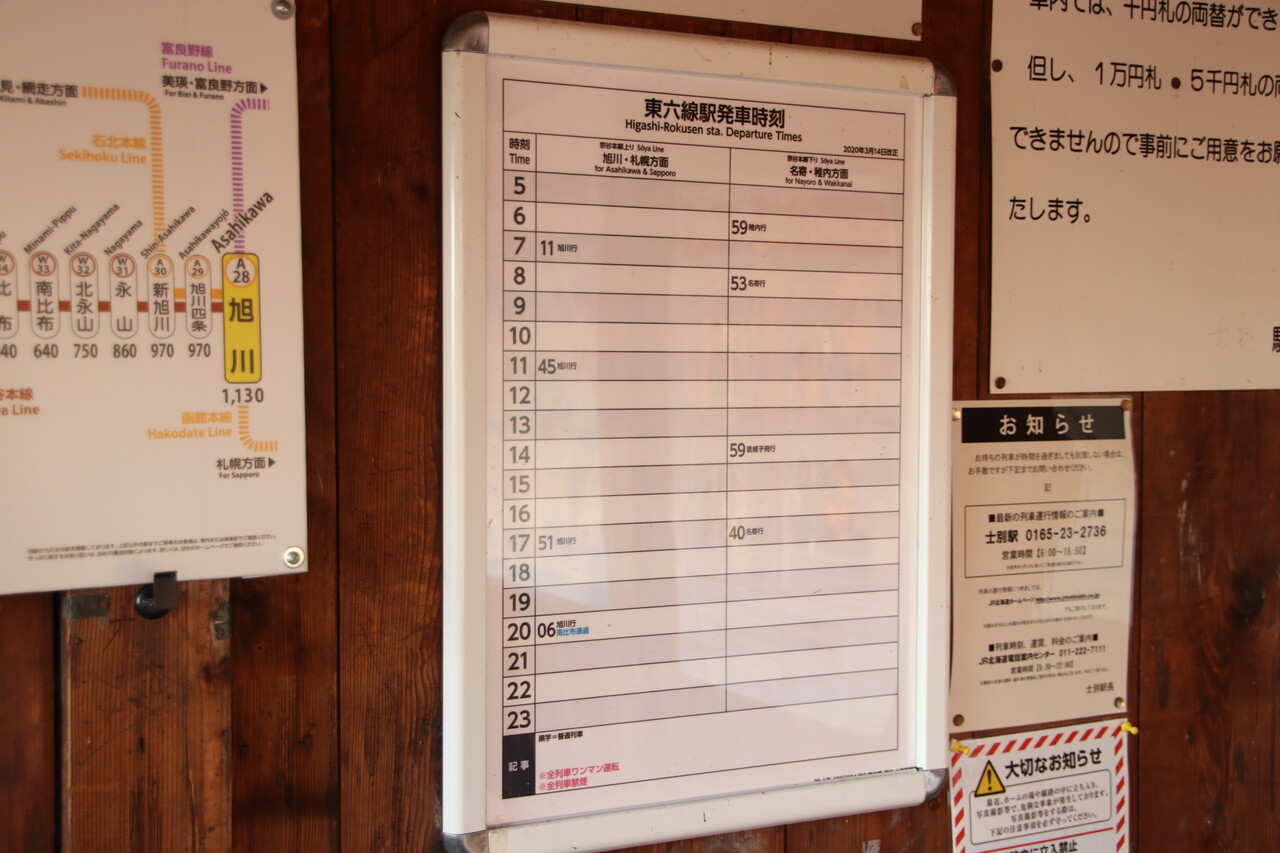 富良野線
Furano Line
美瑛・富良野方面▶
For Biei & Furano
見・網走方面
Kitami & Abashiri
石北本線
Sekihoku Line
Minami-Pippu
Kita-Nagayama
Nagayama
Shin-Asahikawa
Asahikawayojō
Asahikawa
W 33
W 32
W 31
A 30
A 29
A 28
比布
南比布
北永山
永山
新旭川
旭川四条
旭川
40
640
750
860
970
970
1,130
谷本線
ya Line
函館本線
Hakodate Line
札幌方面▶
For Sapporo
東六線駅発車時刻
Higashi-Rokusen sta. Departure Times
2020年3月14日改正
時刻
Time
宗谷本線上り Sōya Line
旭川・札幌方面
for Asahikawa & Sapporo
宗谷本線下り Sōya Line
名寄・稚内方面
for Nayoro & Wakkanai
5
6
59 稚内行
7
11 旭川行
8
53 名寄行
9
10
11
45 旭川行
12
13
14
59 音威子府行
15
16
17
51 旭川行
40 名寄行
18
19
20
06 旭川行
南比布通過
21
22
23
記事
黒字=普通列車
※全列車ワンマン運転
※全列車禁煙
車内では、千円札の両替ができ
但し、1万円札●5千円札の両
できませんので事前にご用意をお願
たします。
お知らせ
お待ちの列車が時間を過ぎましても到着しない場合は、
お手数ですが下記までお問い合わせください。
記
■最新の列車運行情報のご案内■
士別駅 0165-23-2736
営業時間【6:00~16:50】
■列車時刻、運賃、料金のご案内■
JR北海道電話案内センター 011-222-7111
営業時間【6:30~22:00】
士別駅長
大切なお知らせ
最近、ホームの端や線路の中に立ち入り、
写真撮影等で、危険な事象が発生しております。
写真撮影等をする際は、
下記の注意事項を必ず守ってください。
内に立入禁止